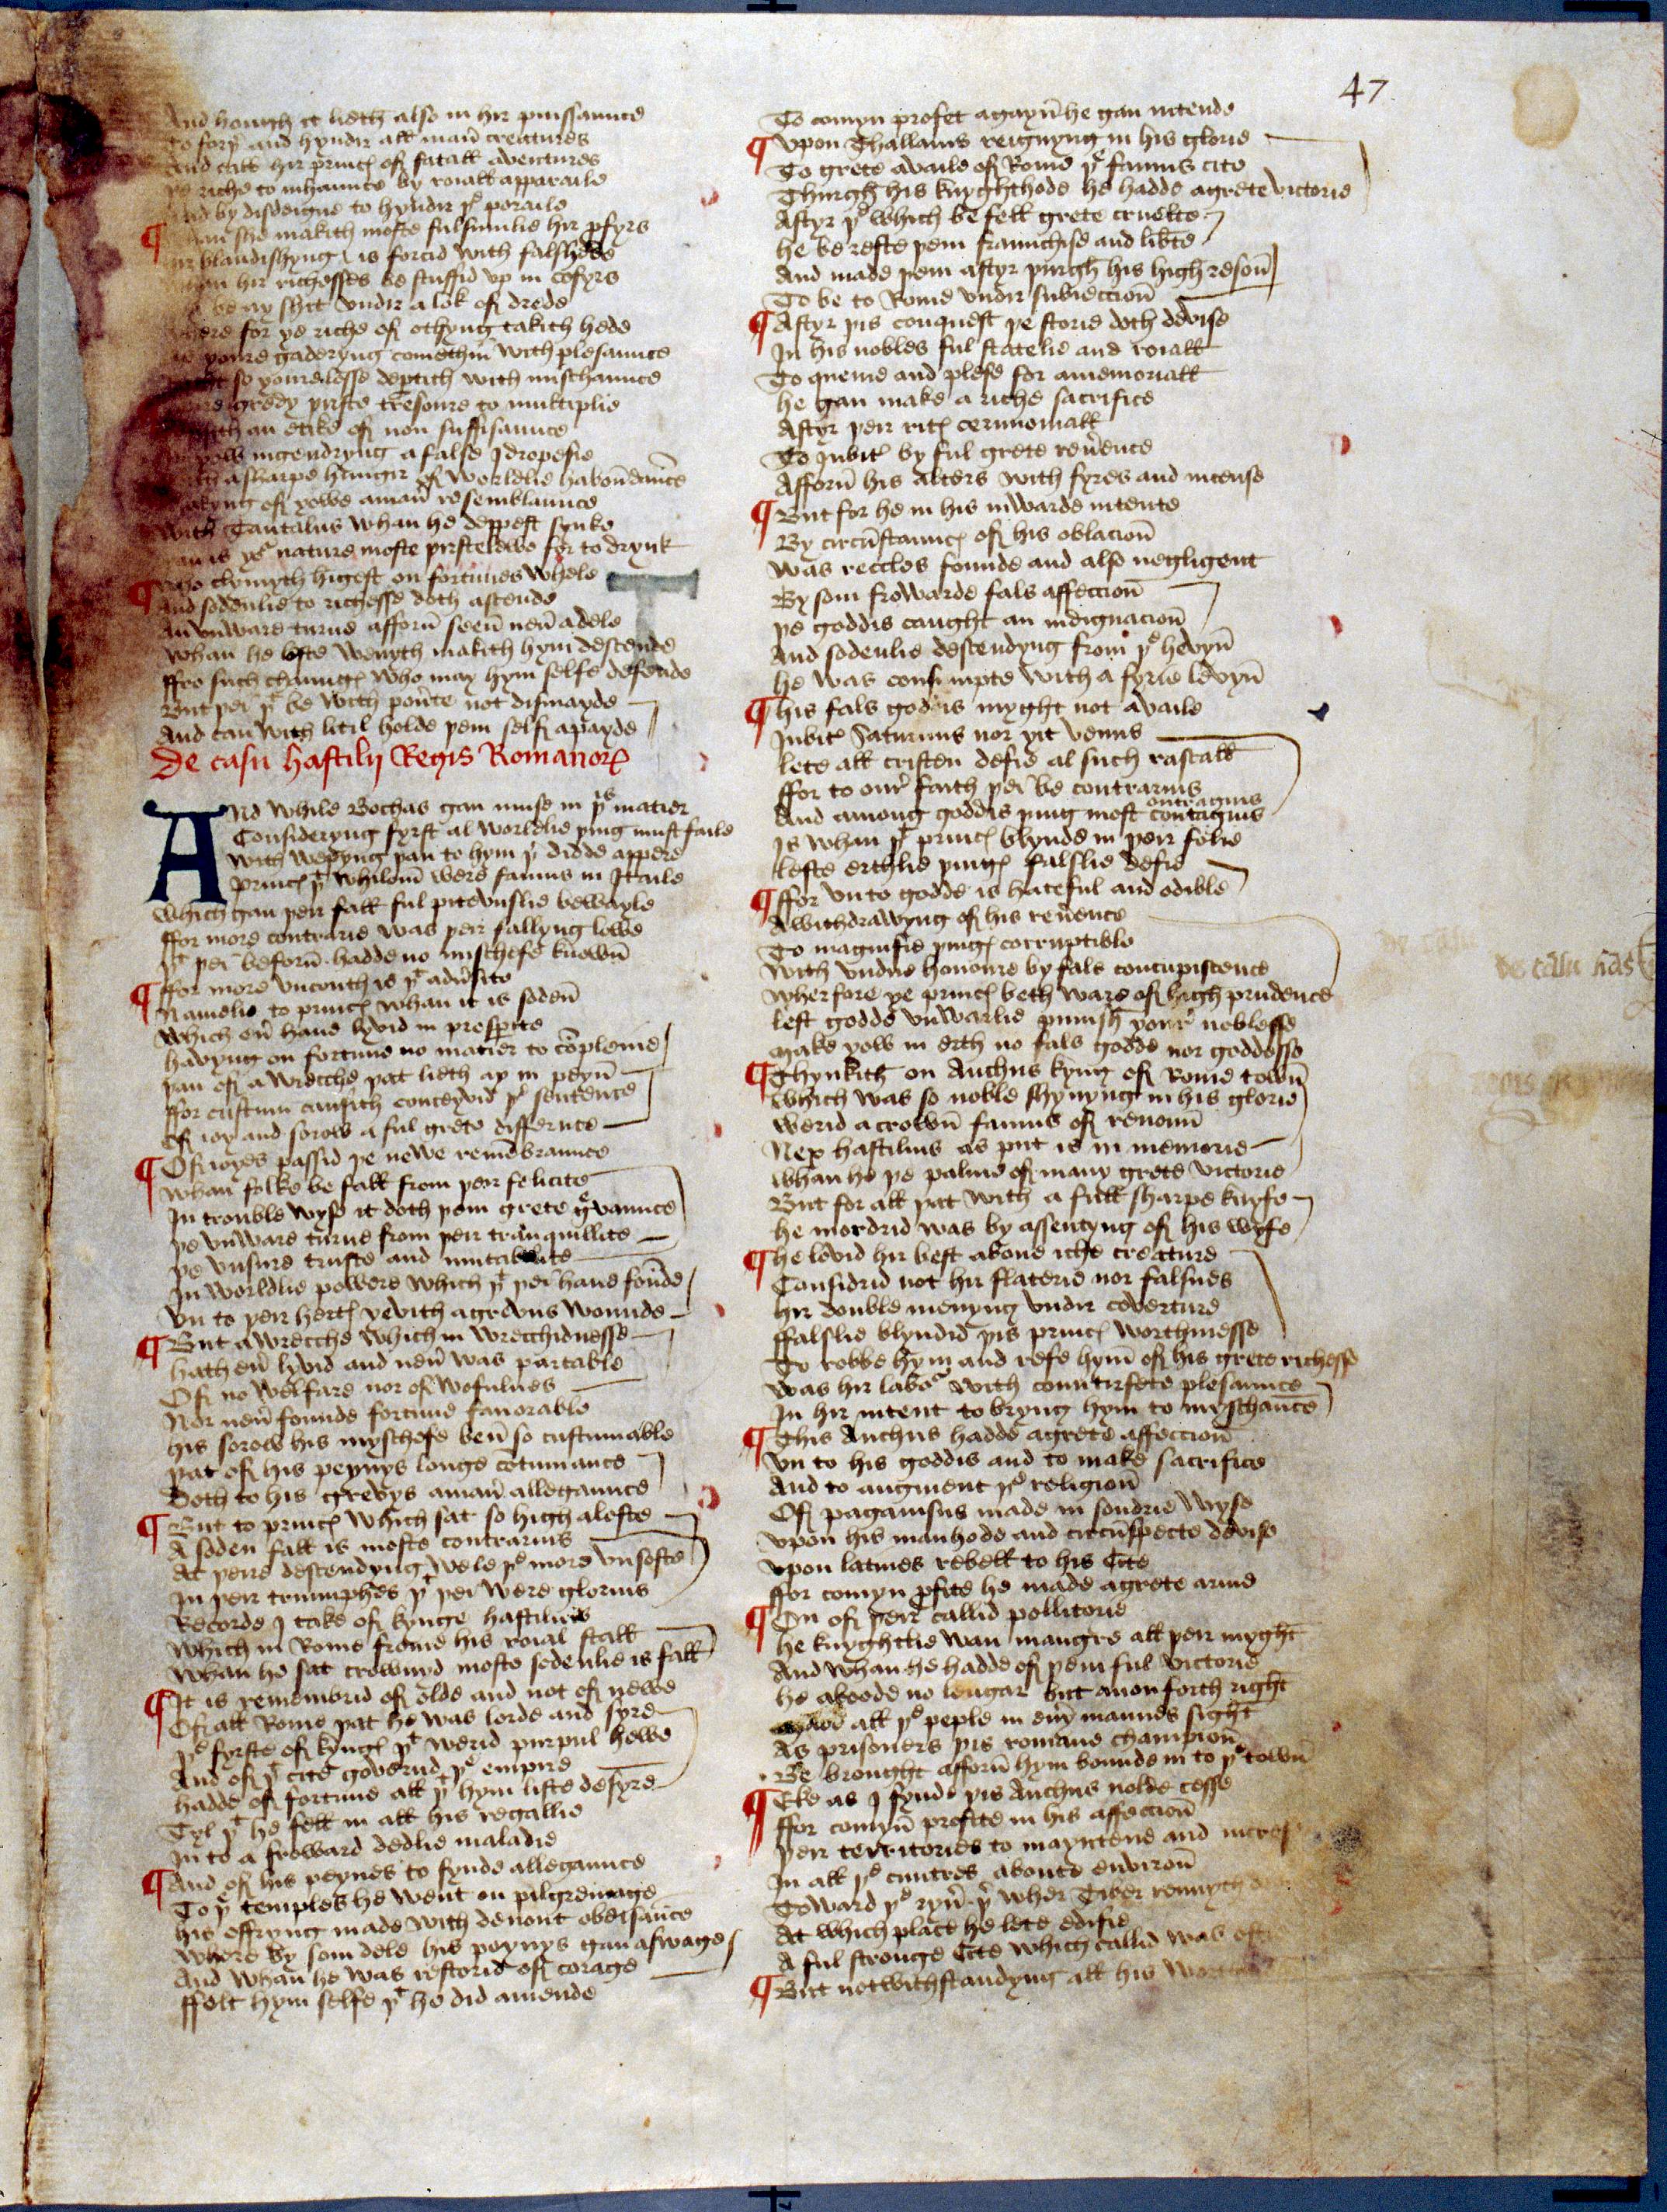 47
And hough it lieth also in hir puissaunce
To forþ and hyndir all manr creatures
And call hir princes of fatall aventures
riche to inhaunce by roiall apparaile
by disdeigne to hyndir þe poraile
she makith moste fulsumlie hir pfyrs
blandishyng is forcid with falshede
hir richesses be stuffid up in cofyrs
be ay shit undir a lok of drede
for þe riche of othyng takith hede
youre gaderyng comethin with plesaunce
so youre losse deptith with mischaunce
gredy þirste tresoure to multiplie
an etike of non suffisaunce
ingendryng a false Idropesie
asharpe hungir of worldlie habondance
of yowe aman resemblaunce
With Tantalus whan he deppest synke
is yor nature moste þirsteldwe for to drynk
who clymyth higest on fortunes whele
And sodenlie to richesse doth astende
An unware turne afforn seen nevr adele
Whan he lefte wenyth makith hym destende
ffro such chaunges who may hym selfe defende
But þei þt be with povrte not dismayde
And can with litil holde þem self apayde
De casu hastilij Regis Romanorum
And while Bochas gan muse in þis matier
Consideryng fyrst al worldlie þing must faile
With wepyng þan to hym þr didde appere
Princes þt whilom were famus in Itaile
Which gan þeir fall ful pitevuslie bewayle
ffor more contrarie was þeir fallyng lowe
þt þei beforn hadde no mischefe knowun
ffor more uncouth is þt advrsite
Namelie to princes whan it is soden
Which evr have lyvid in prosperite
havyng on fortune no matier to compleine
þan of a wrecche þat lieth ay in peyn
ffor custum causith conceyvid þe sentence
Of ioy and sorow a ful grete differnce
Of ioyes passid þe newe remembraunce
Whan folke be fall from þeir felicite
In trouble wyse it doth þem grete grevaunce
þe unware turne from þeir tranquillite
þe unsure truste and mutabilite
In worldlie powere which þt þei have founde
Un to þeir hertes yevith agrevus wounde
But awrecche which in wrecchidnesse
hath evr lyvid and nevr was partable
Of no welfare nor of wofulnes
Nor nevr founde fortune favorable
his sorow his myschefe ben so custumable
þat of his peynys longe cotinuance
Doth to his grevys aman allegaunce
But to princes which sat so high alofte
A soden fall is moste contrarius
At þeire descendyng wele þe more unsofte
In þeir triumphes þt þei were glorius
Recorde I take of kynge hastilius
Which in Rome frome his roial stall
Whan he sat crownyd moste sodenlie is fall
It is remembrid of olde and not of newe
Of all Rome þat he was lorde and syre
þe fyrste of kynges þt werid purpul hewe
And of þt cite governd þe empire
hadde of fortune all þt hym liste desyre
Tyl þt he fell in all his regallie
In to a froward dedlie maladie
And of his peynes to fynde allegaunce
To þe temples he went on pilgremage
his offryng made with devout obeisance
Where by som dele his peynys gan aswage
And whan he was restorid of corage
ffelt hym selfe þt he did amende
To comyn profet agayn he gan intende
Upon Thallanis reignyng in his glorie
To grete availe of Rome þe famus cite
Thurgh his knyghthode he hadde agrete victorie
Aftyr þe which be fell grete cruelte
he be refte þem fraunchise and libte
And made þem aftyr þurgh his high reson
To be to Rome undir subieccion
Aftyr þis conquest þe storie doth devise
In his nobles ful statelie and roiall
To queme and plese for amemoriall
he gan make a riche sacrifice
Aftyr þeir rites cerimoniall
To Jubiter by ful grete revrence
Afforn his alters with fyres and incense
But for he in his inwarde intente
By circunstaunces of his oblacion
Was reccles founde and also negligent
By som frowarde fals affeccion
þe goddis caught an indignacion
And sodenlie destendyng from þe hevyn
he was consumpte with a fyrie levyn
his fals goddis myght not availe
Jubiter Saturnus nor yit venus
lete all cristen defie al such rascall
ffor to our faith þei be contrarius
ontragius
And among goddis þing most contagius
Is whan þt princes blynde in þeir folie
lefte erthlie þinges falslie defie
ffor unto godde is hateful and odible
Awithdrawyng of his revrence
To magnifie þinges corruptible
With undue honoure by fals concupiscence
Wherfore ye princes beth ware of high prudence
lest godde unwarlie punish your noblesse
make yow in erth no fals godde nor goddesse
Thynkith on Anchus kyng of Rome town
Which was so noble shynyng in his glorie
Werid acrown famus of renoun
Nex hastilius as put is in memorie
Whan he þe palme of many grete victorie
But for all þat with a full sharpe knyfe
he mordrid was by assentyng of his wyfe
he lovid hir best above iche creature
Consideid not hir flaterie nor falsnes
hir double menyng undir coverture
ffalslie blyndid þis princes worthinesse
To robbe hym and refe hym of his grete richesse
Was hir labor with countirfete plesaunce
In hir intent to bryng hym to myschance
This Anchus hadde agrete affeccion
Un to his goddis and to make sacrifice
And to augment þe religion
Of paganisus made in sondrie wyse
Upon his manhode and circumspecte devise
Upon latines rebell to his Cite
ffor comyn pfite he made agrete arme
On of þeir callid pollitorie
he knyghtlie wan maugre all þeir myght
And whan he hadde of þem ful victorie
he aboode no lengar but anon forth right
made all þe peple in evry mannes sight
As prisoners þis romane champion
Be brought afforn hym bounde in to þe town
Eke as I fynde þis Anchus nolde cesse
ffor comyn profite in his affeccion
þeir territories to mayntene and incres
In all þe cuntres aboute environ
Toward þe ryvr þr wher Tiber rennyth
At which place he lete edifie
A ful stronge Cite which callid was
But notwithstandyng all his
de casu has